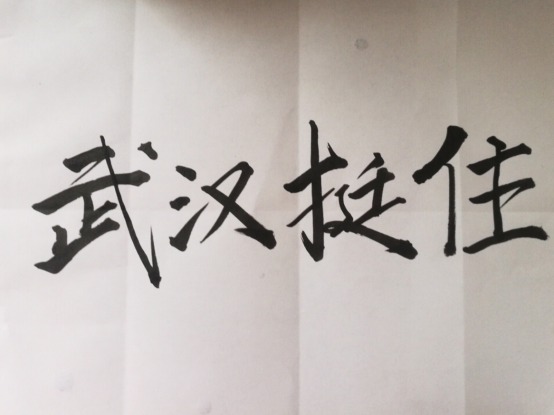 武汉挺住